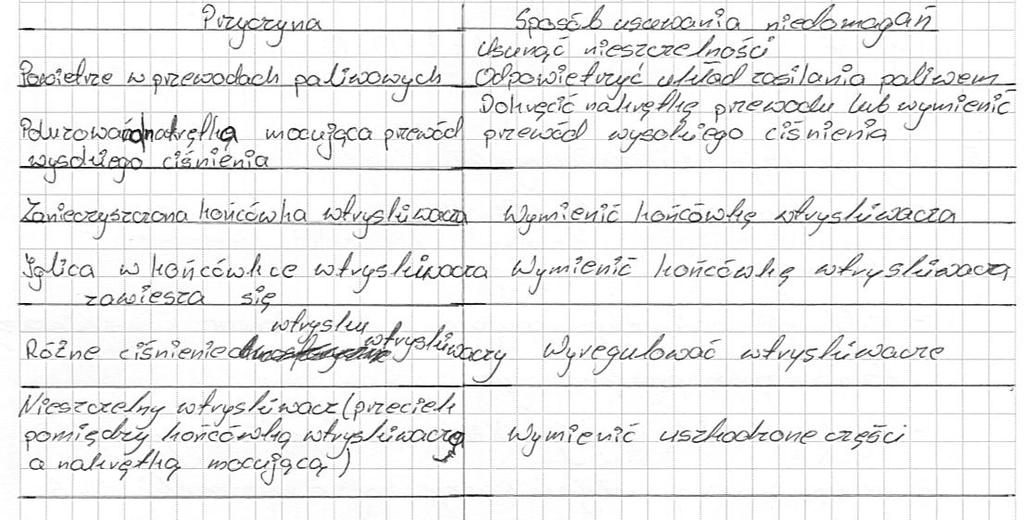 Przyczyna Sposób usuwania niedomagań
Usunąć nieszczelności
Powietrze w przewodach paliwowych Odpowietrzyć układ zasilania paliwem
Dokręcić nakrętkę przewodu lub wymienić
Poluzowana nakrętka mocująca przewód przewód wysokiego ciśnienia
wysokiego ciśnienia
Zanieczyszczona końcówka wtryskiwacza Wymienić końcówkę wtryskiwacza
Iglica w końcówce wtryskiwacza Wymienić końcówkę wtryskiwacza
zawiesza się
wtrysku
Różne ciśnienie wtryskiwaczy Wyregulować wtryskiwacze
Nieszczelny wtryskiwacz (przeciek
pomiędzy końcówką wtryskiwacza Wymienić uszkodzone części
a nakrętką mocującą)